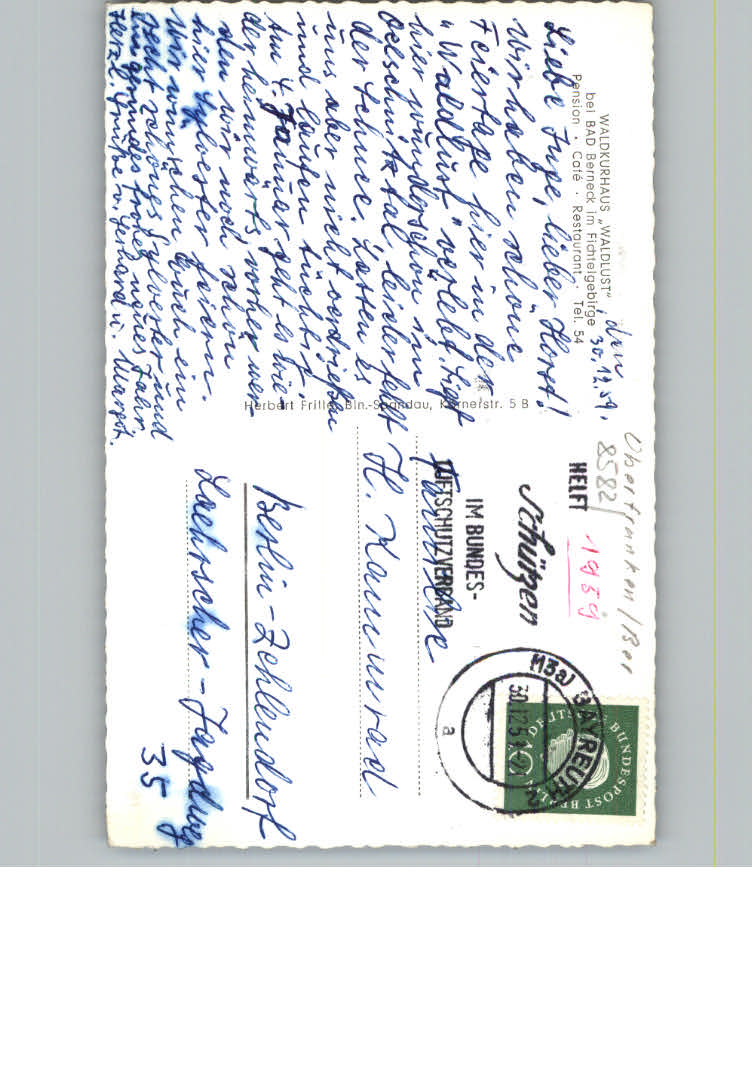 WALDKURHAUS „WALDLUST"
bei BAD Berneck im Fichtelgebirge
Pension · Café · Restaurant · Tel. 54
, den
30.12.59.
Liebe Inge, lieber Horst!
Wir haben schöne
Feiertage hier in der
„Waldlust" verlebt. Liegt
hier wunderschön im
Oelschnitztal, leider fehlt
der Schnee. Lassen es
uns aber nicht verdrießen
und laufen tüchtig.
Am 4. Januar geht es wie-
der heimwärts, vorher wer-
den wir noch schön
hier Sylvester feiern.
Wir wünschen Euch ein
recht schönes Sylvester und
ein gesundes frohes neues Jahr.
Herzl. Grüße von Gerhard u. Margot.
Herbert Fritler, Bln.-Spandau, Körnerstr. 5 B
Oberfranken / Ber
8582
1959
HELFT
schützen
IM BUNDES-
LUFTSCHUTZVERBAND
(13a) BAYREUTH 2
30.12.59
a
DEUTSCHE BUNDESPOST BERLIN
Familie
H. Kammrad
Berlin-Zehlendorf
Laehrscher-Jagdweg
35